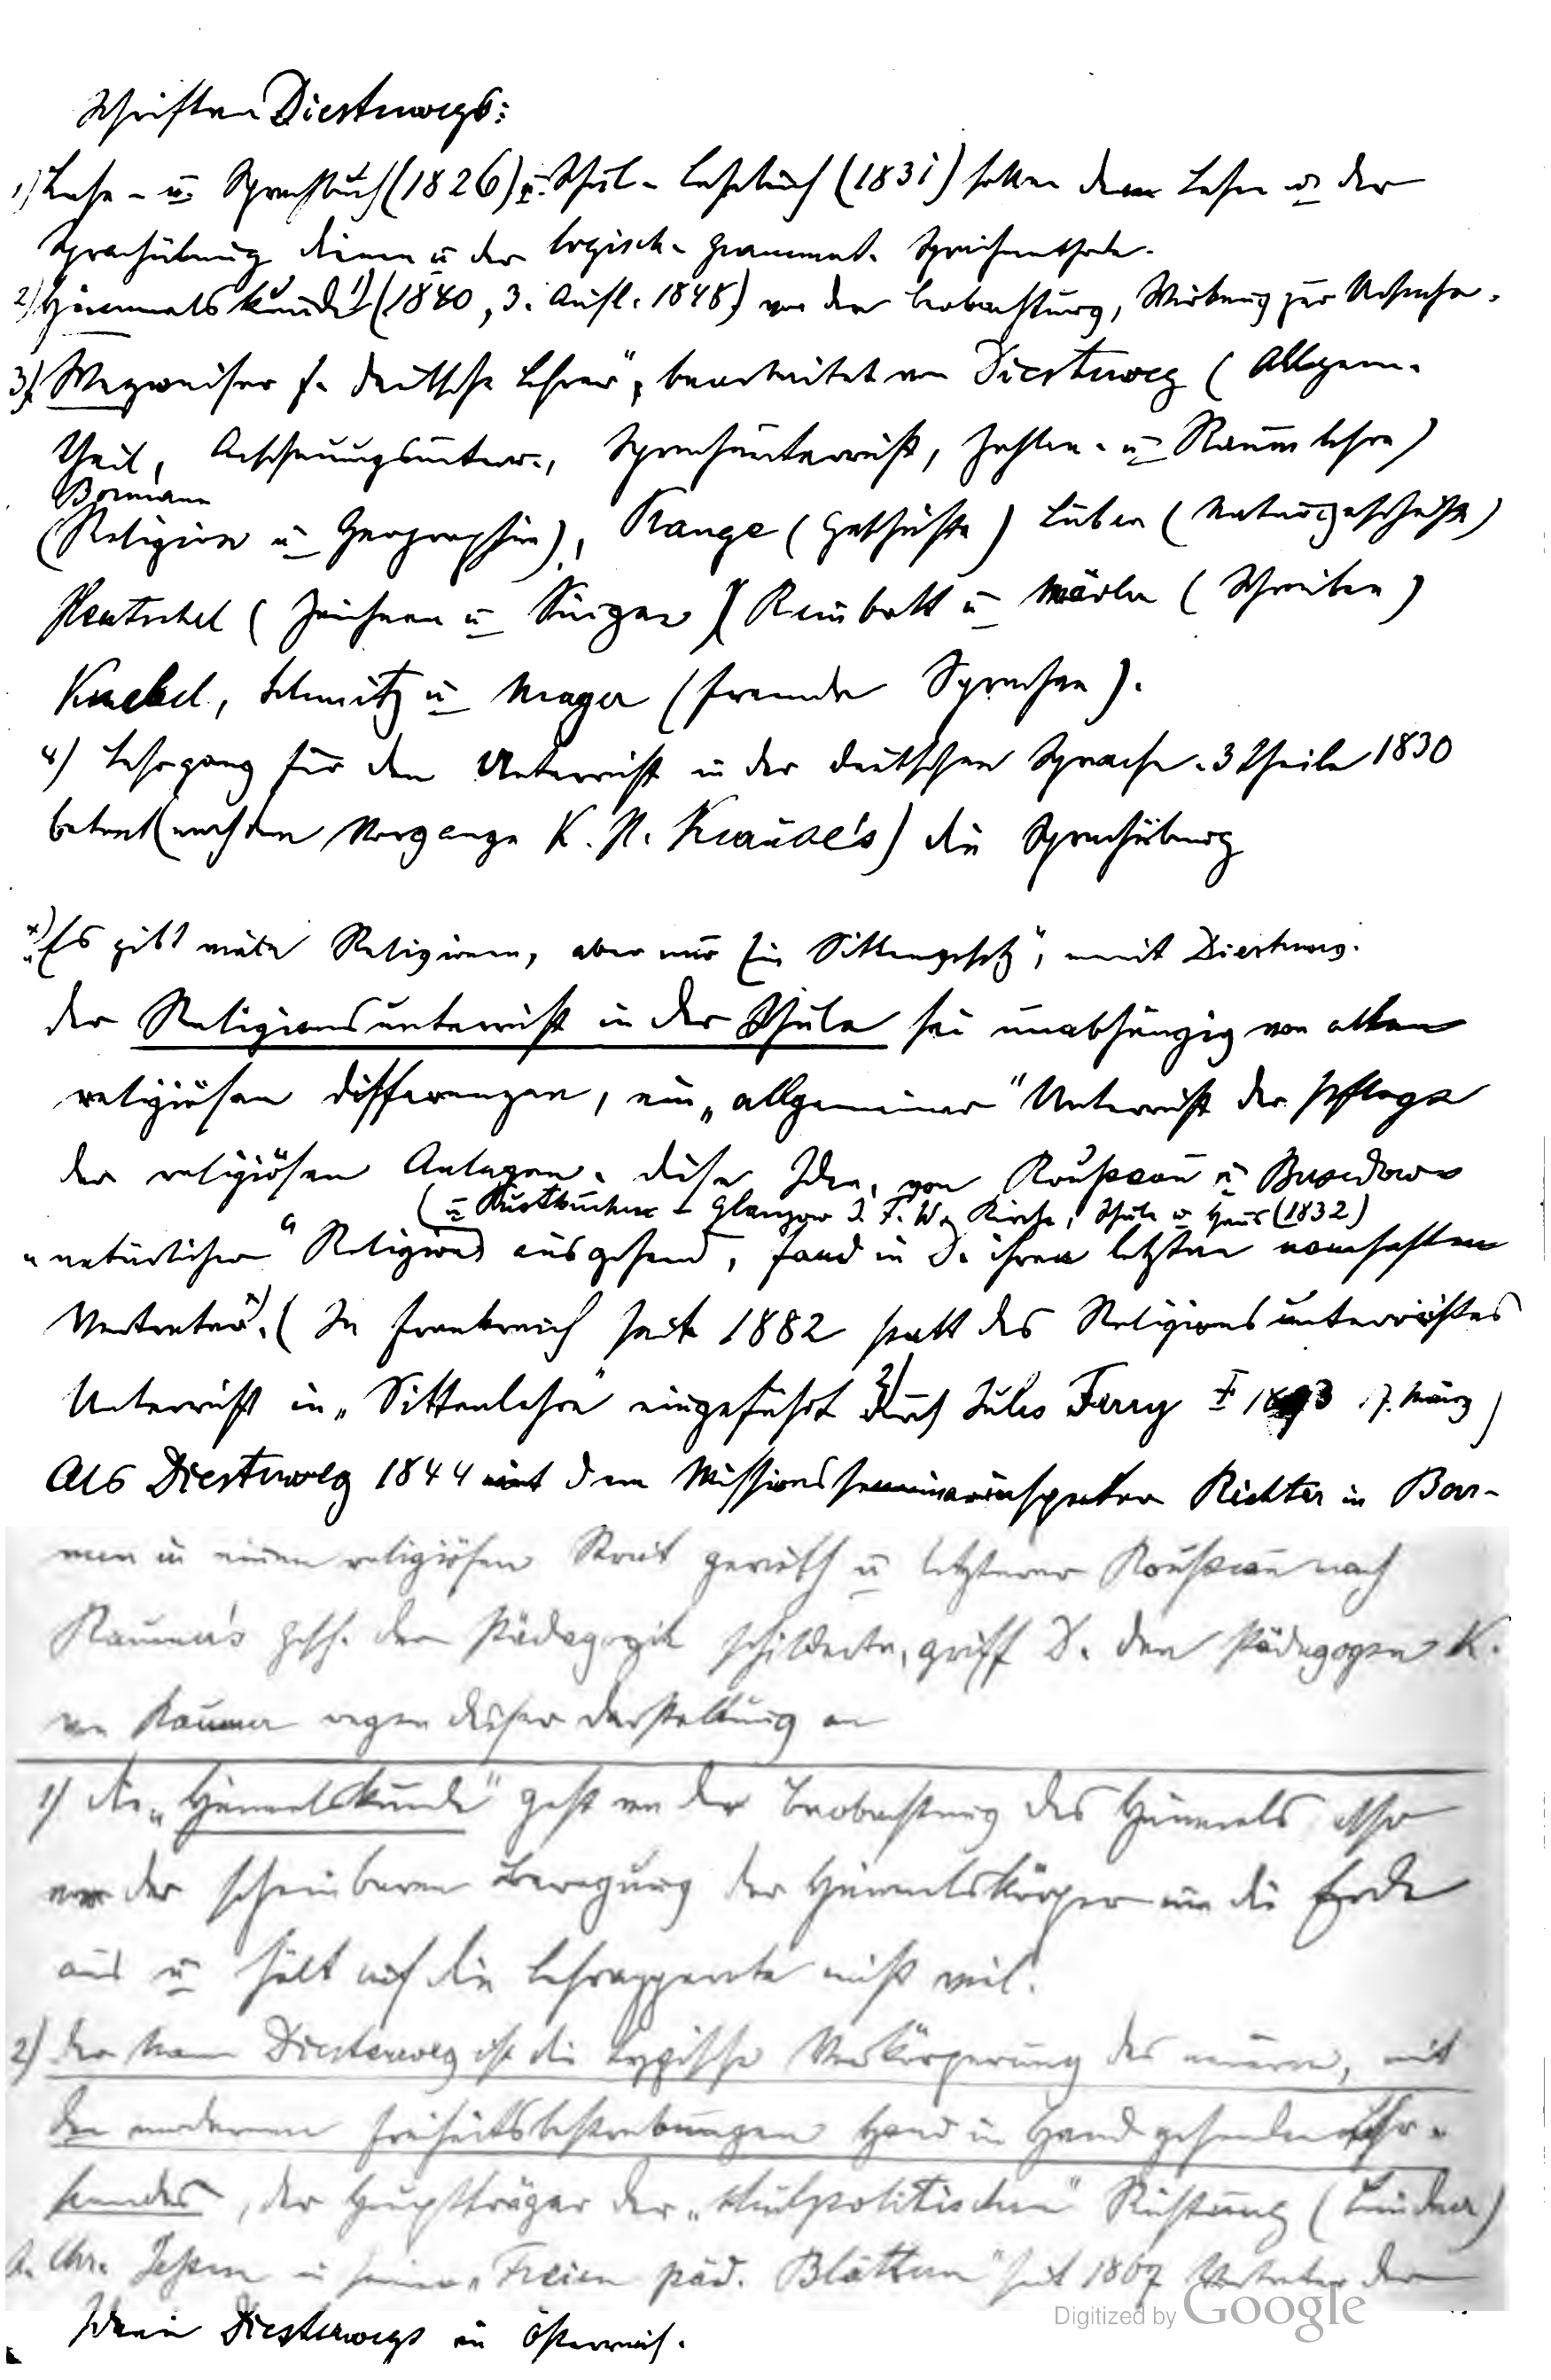 Schriften Diesterwegs:
1) Lese- u. Sprachbuch (1826) u. Schul-Lesebuch (1831) sollen dem Lesen u der
Sprachübung dienen u der logisch-grammat. Sprachmethode.
2) Himmelskunde 1) (1840, 3. Aufl. 1848) von der Beobachtung, Wirkung zur Ursache.
3) Wegweiser f. deutsche Lehrer", bearbeitet von Diesterweg (Allgem.
Theil, Anschauungsunterr., Sprachunterricht, Zahlen- u Raumlehre)
Bormann
(Religion u Geographie), Prange (Geschichte) Lüben (Naturgeschichte)
Hentschel (Zeichnen u Singen) (Reinbott u Mädler (Schreiben)
Knebel, Schmitz u Mager (fremde Sprachen).
4) Lehrgang für den Unterricht in der deutschen Sprache. 3 Theile 1830
betont (nach dem Vorgange K. H. Krause's) die Sprachübung
x) „Es gibt viele Religionen, aber nur Ein Sittengesetz", meint Diesterweg.
der Religionsunterricht in der Schule sei unabhängig von allen
religiösen Differenzen, ein „allgemeiner" Unterricht der Pflege
der religiösen Anlagen. diese Idee, von Rousseau u Basedows
(u Kurtbuchers - Glanzow J. F. W., Kirche, Schule u Haus (1832)
„natürlicher" Religion ausgehend, fand in D. ihren letzten namhaften
Vertreter x). (In Frankreich seit 1882 statt des Religionsunterrichtes
Unterricht in „Sittenlehre" eingeführt durch Jules Ferry † 1893 17. März)
2)
Als Diesterweg 1844 mit dem Missionsseminarinspector Richter in Bar-
men in einen religiösen Streit gerieth u letzterer Rousseau nach
Raumer's Gesch. der Pädagogik schilderte, griff D. den Pädagogen K.
von Raumer wegen dieser Darstellung an
1) die „Himmelskunde" geht von der Beobachtung des Himmels also
von der scheinbaren Bewegung der Himmelskörper um die Erde
aus u hält auf die Lehrapparate nicht viel.
2) der Name Diesterweg ist die typische Verkörperung des neuern, mit
den modernen Freiheitsbestrebungen Hand in Hand gehenden Lehr-
standes, der Hauptträger der „schulpolitischen" Richtung (Lindner)
A. Chr. Jessen in seinen „Freien päd. Blättern" seit 1867 Vertreter der
Ideen Diesterwegs in Österreich.
Digitized by Google